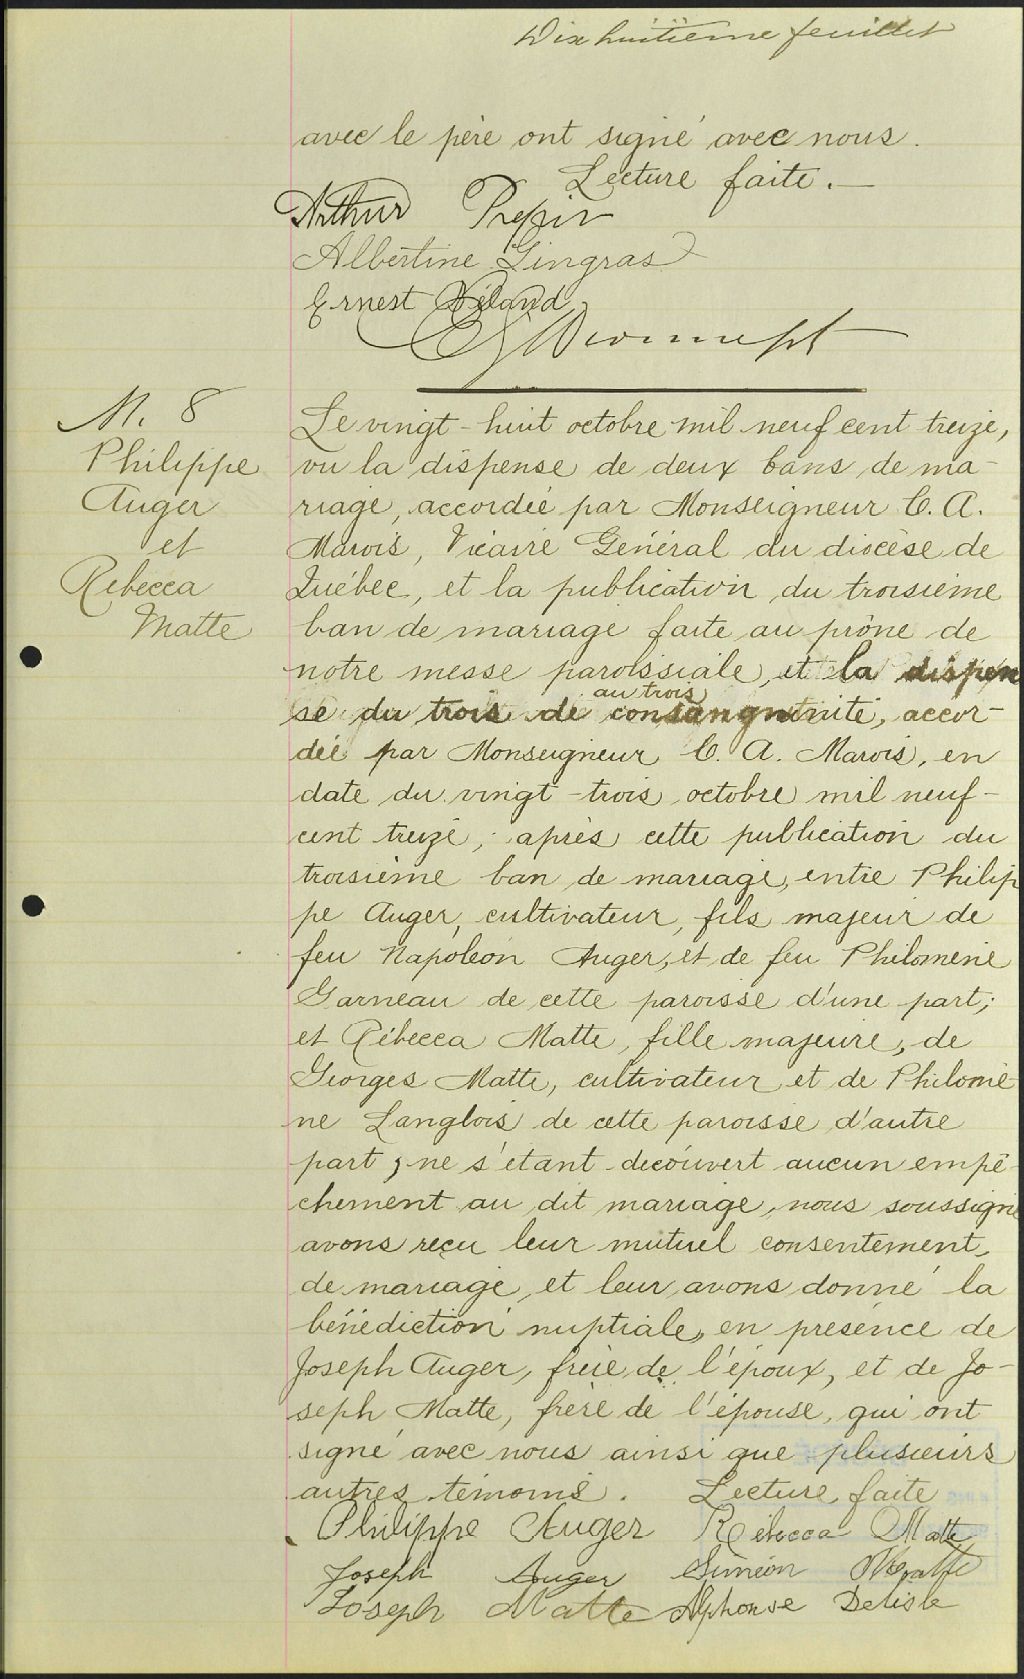 Dix huitième feuillet
avec le père ont signé avec nous.
Lecture faite. —
Arthur
Albertine Gingras
Ernest Béland
M. 8
Philippe
Auger
et
Rébecca
Matte
Le vingt-huit octobre mil neuf cent treize,
vu la dispense de deux bans de ma-
riage, accordée par Monseigneur C. A.
Marois, Vicaire Général du diocèse de
Québec, et la publication du troisième
ban de mariage faite au prône de
notre messe paroissiale, et la dispen
au trois
se du trois de consanguinité, accor-
dée par Monseigneur C. A. Marois, en
date du vingt-trois octobre mil neuf-
cent treize; après cette publication du
troisième ban de mariage, entre Philip
pe Auger, cultivateur, fils majeur de
feu Napoléon Auger, et de feu Philomène
Garneau de cette paroisse d'une part;
et Rébecca Matte, fille majeure, de
Georges Matte, cultivateur et de Philomè-
ne Langlois de cette paroisse d'autre
part; ne s'étant découvert aucun empê-
chement au dit mariage, nous soussigné
avons reçu leur mutuel consentement
de mariage, et leur avons donné la
bénédiction nuptiale, en présence de
Joseph Auger, frère de l'époux, et de Jo-
seph Matte, frère de l'épouse, qui ont
signé avec nous ainsi que plusieurs
autres témoins. Lecture faite
Philippe Auger Rébecca Matte
Joseph Auger Siméon Matte
Joseph Matte Alphonse Delisle